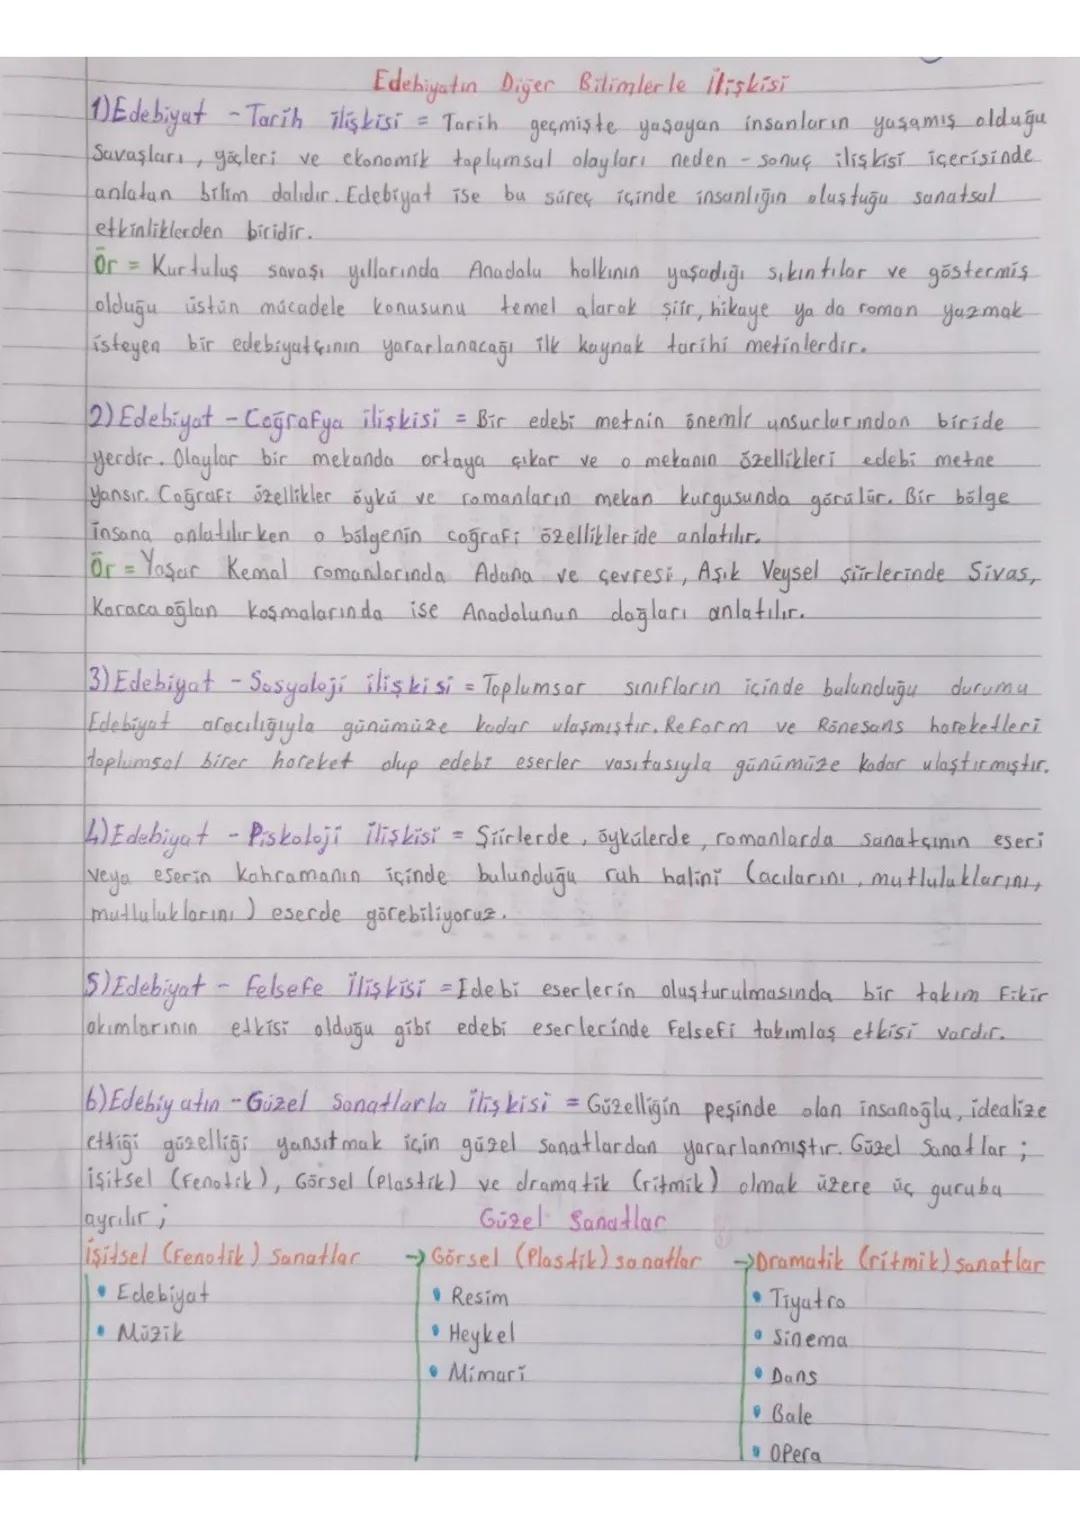 Edebiyatın Diğer Bilimlerle İlişkisi
1) Edebiyat - Tarih ilişkisi = Tarih geçmişte yaşayan insanların yaşamış olduğu
Savaşları, göçleri ve ekonomik toplumsal olayları neden - sonuç ilişkisi içerisinde
anlatan bilim dalıdır. Edebiyat ise bu süreç içinde insanlığın oluştuğu sanatsal
etkinliklerden biridir.
Ör = Kurtuluş savaşı yıllarında Anadolu halkının yaşadığı sıkıntılar ve göstermiş
olduğu üstün mücadele konusunu temel alarak şiir, hikaye ya da roman yazmak
isteyen bir edebiyatçının yararlanacağı ilk kaynak tarihi metinlerdir.
2) Edebiyat - Coğrafya ilişkisi = Bir edebi metnin önemli unsurlarından biride
yerdir. Olaylar bir mekanda ortaya çıkar ve o mekanın özellikleri edebi metne
yansır. Coğrafi özellikler öykü ve romanların mekan kurgusunda görülür. Bir bölge
insana anlatılırken o bölgenin coğrafi özellikleride anlatılır.
Ör = Yaşar Kemal romanlarında Adana ve çevresi, Aşık Veysel şiirlerinde Sivas,
Karacaoğlan koşmalarında ise Anadolunun dağları anlatılır.
3) Edebiyat - Sosyoloji ilişkisi = Toplumsar sınıfların içinde bulunduğu durumu
Edebiyat aracılığıyla günümüze kadar ulaşmıştır. Reform ve Rönesans hareketleri
toplumsal birer hareket olup edebi eserler vasıtasıyla günümüze kadar ulaştırmıştır.
4) Edebiyat - Piskoloji ilişkisi = Şiirlerde, öykülerde, romanlarda sanatçının eseri
veya eserin kahramanın içinde bulunduğu ruh halini (acılarını, mutluluklarını,
mutluluklarını) eserde görebiliyoruz.
5) Edebiyat - Felsefe İlişkisi = Edebi eserlerin oluşturulmasında bir takım Fikir
akımlarının etkisi olduğu gibi edebi eserlerinde Felsefi takımlaş etkisi vardır.
6) Edebiyatın - Güzel Sanatlarla ilişkisi = Güzelliğin peşinde olan insanoğlu, idealize
ettiği güzelliği yansıtmak için güzel sanatlardan yararlanmıştır. Güzel Sanatlar ;
işitsel (Fenotik), Görsel (Plastik) ve dramatik (ritmik) olmak üzere üç guruba
ayrılır ;
Güzel Sanatlar
işitsel (Fenotik) Sanatlar → Görsel (Plastik) sanatlar → Dramatik (ritmik) sanatlar
• Edebiyat • Resim • Tiyatro
• Müzik • Heykel • Sinema
• Mimari • Dans
• Bale
• Opera